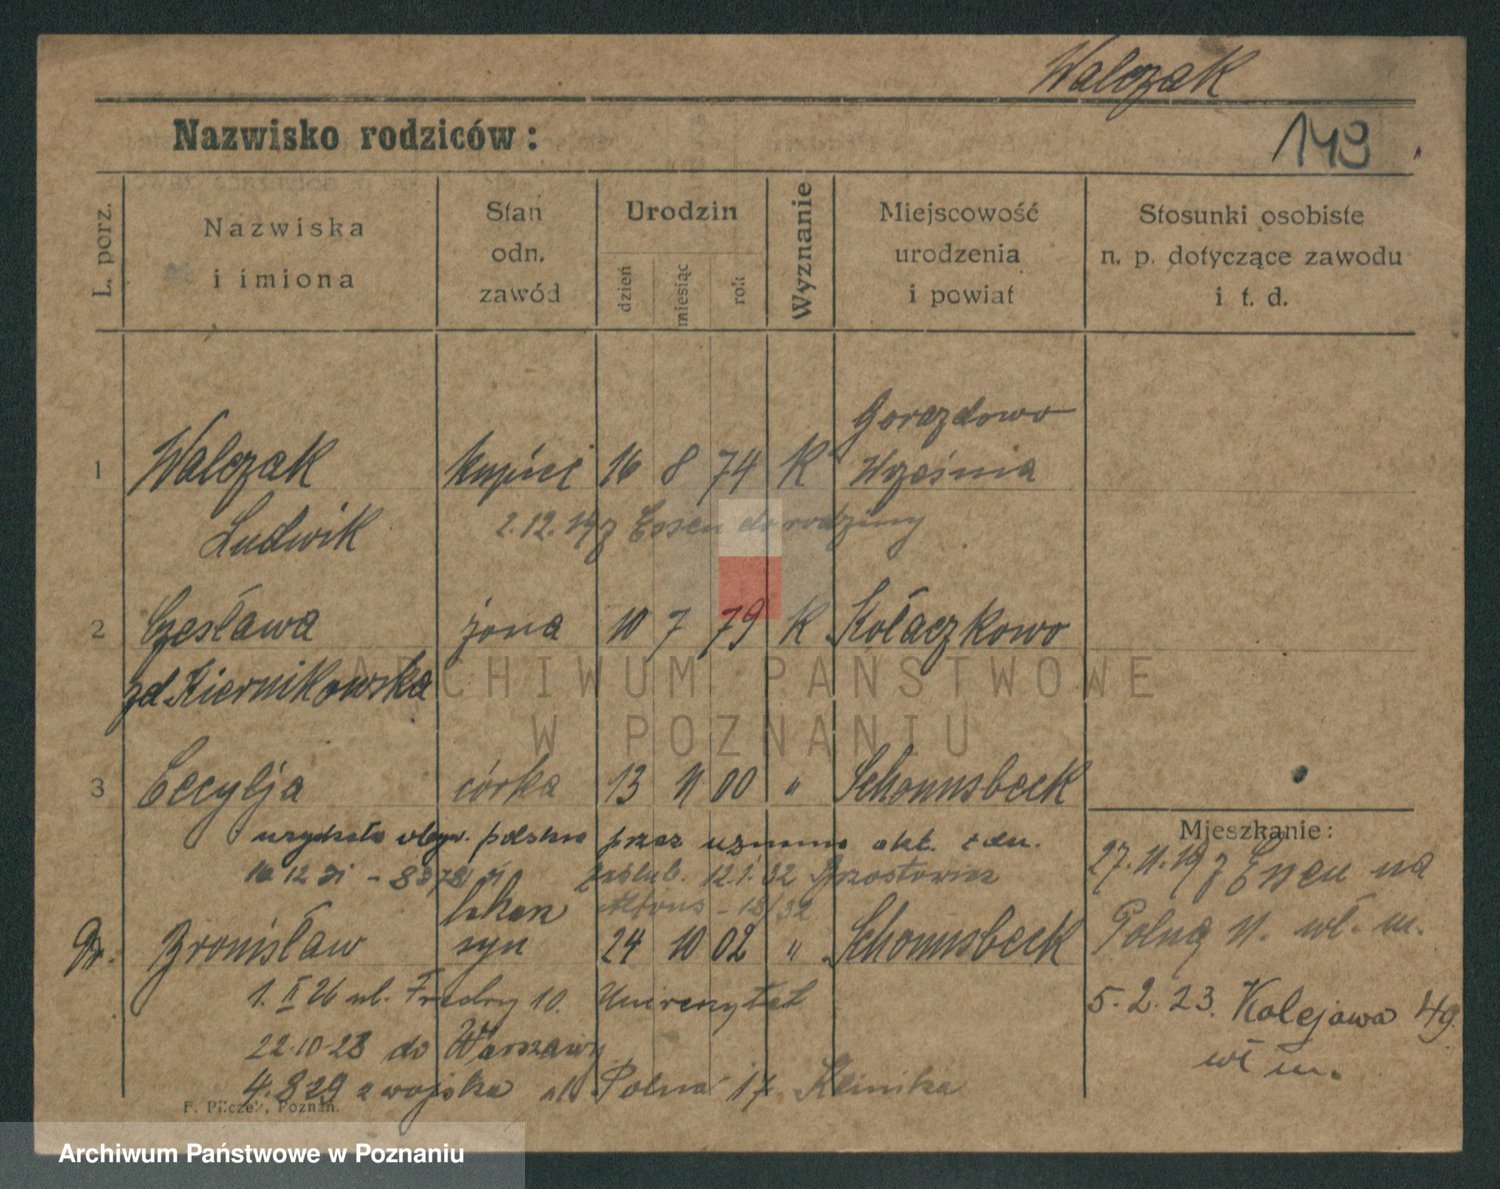 Walczak
Nazwisko rodziców:
149
L. porz.
Nazwiska
i imiona
Stan
odn.
zawód
Urodzin
dzień
miesiąc
rok
Wyznanie
Miejscowość
urodzenia
i powiat
Stosunki osobiste
n. p. dotyczące zawodu
i t. d.
Gorazdowo
1 Walczak kupiec 16 8 74 K Września
Ludwik 2.12.19 z Essen do rodziny
2 Czesława żona 10 7 79 K Kołaczkowo
zd Kiernikowska
ARCHIWUM PAŃSTWOWE
W POZNANIU
3 Cecylja córka 13 11 00 " Schonnsbeck
uzyskała obyw. polskie przez
Mieszkanie:
27.11.19 z Essen na
zaślub. 12.1.32 Brzostowicz
lekarz Alfons
Polną 11. wł. m.
Dr. Bronisław syn 24 10 02 " Schonnsbeck
1. II 26 ul. Fredry 10. Uniwersytet
5.2.23. Kolejowa 49
22.10.28 do Warszawy
wł m.
4.8 29 z wojska ul. Polna 17 Klinika
F. Pilczek, Poznań.
Archiwum Państwowe w Poznaniu